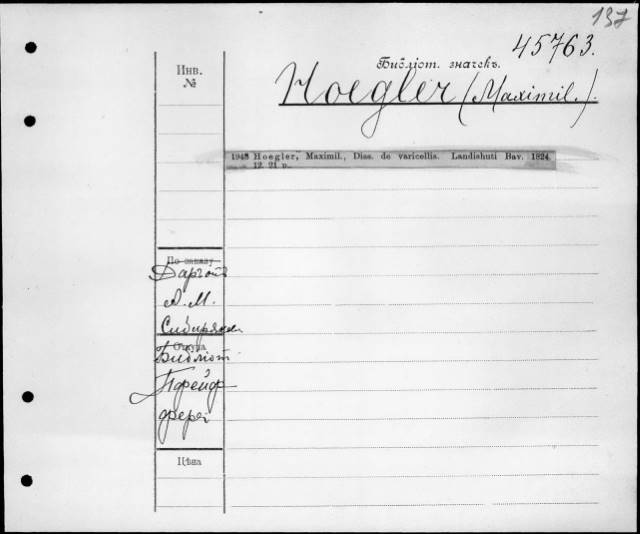 137
45763.
Инв.
№
Библіот. значекъ.
Hoegler (Maximil.).
1948 Hoegler, Maximil., Diss. de varicellis. Landishuti Bav. 1824.
12. 21 p.
По заказу
Даръ отъ
А. М.
Сибирякова
Откуда
Библіот
Пфейф
феръ
Цѣна